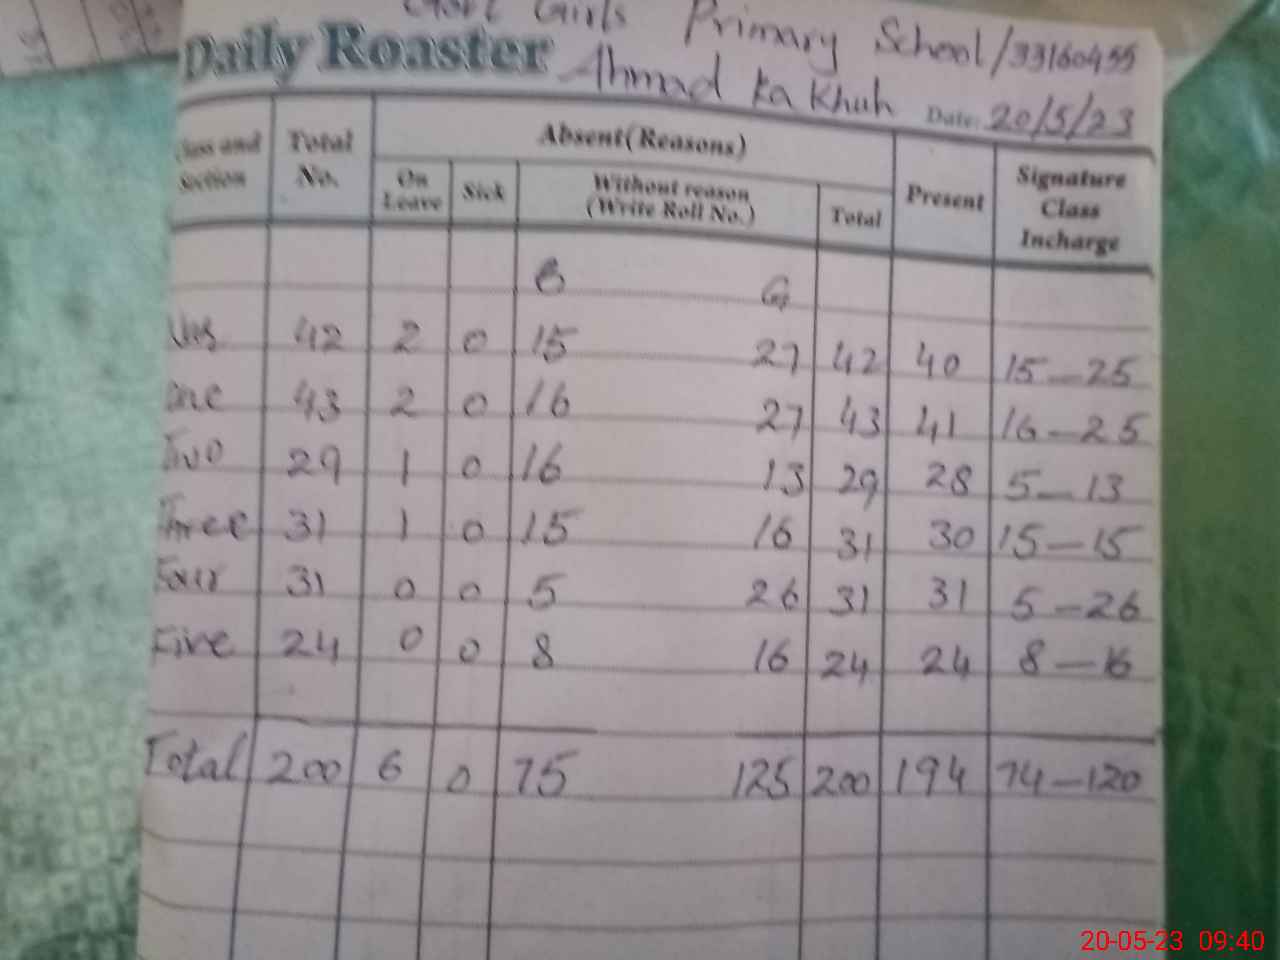 Govt Girls Primary School/33160455
Daily Roaster Ahmad Ka Khuh Date: 20/5/23
Class and Section Total No. Absent(Reasons) Present Signature Class Incharge
On Leave Sick Without reason (Write Roll No.) Total
B G
42 2 0 15 27 42 40 15—25
One 43 2 0 16 27 43 41 16—25
Two 29 1 0 16 13 29 28 5—13
Three 31 1 0 15 16 31 30 15—15
Four 31 0 0 5 26 31 31 5—26
Five 24 0 0 8 16 24 24 8—16
Total 200 6 0 75 125 200 194 74—120
20-05-23 09:40